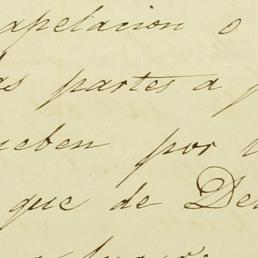 apelacion o
as partes a p
ueben por
que de De